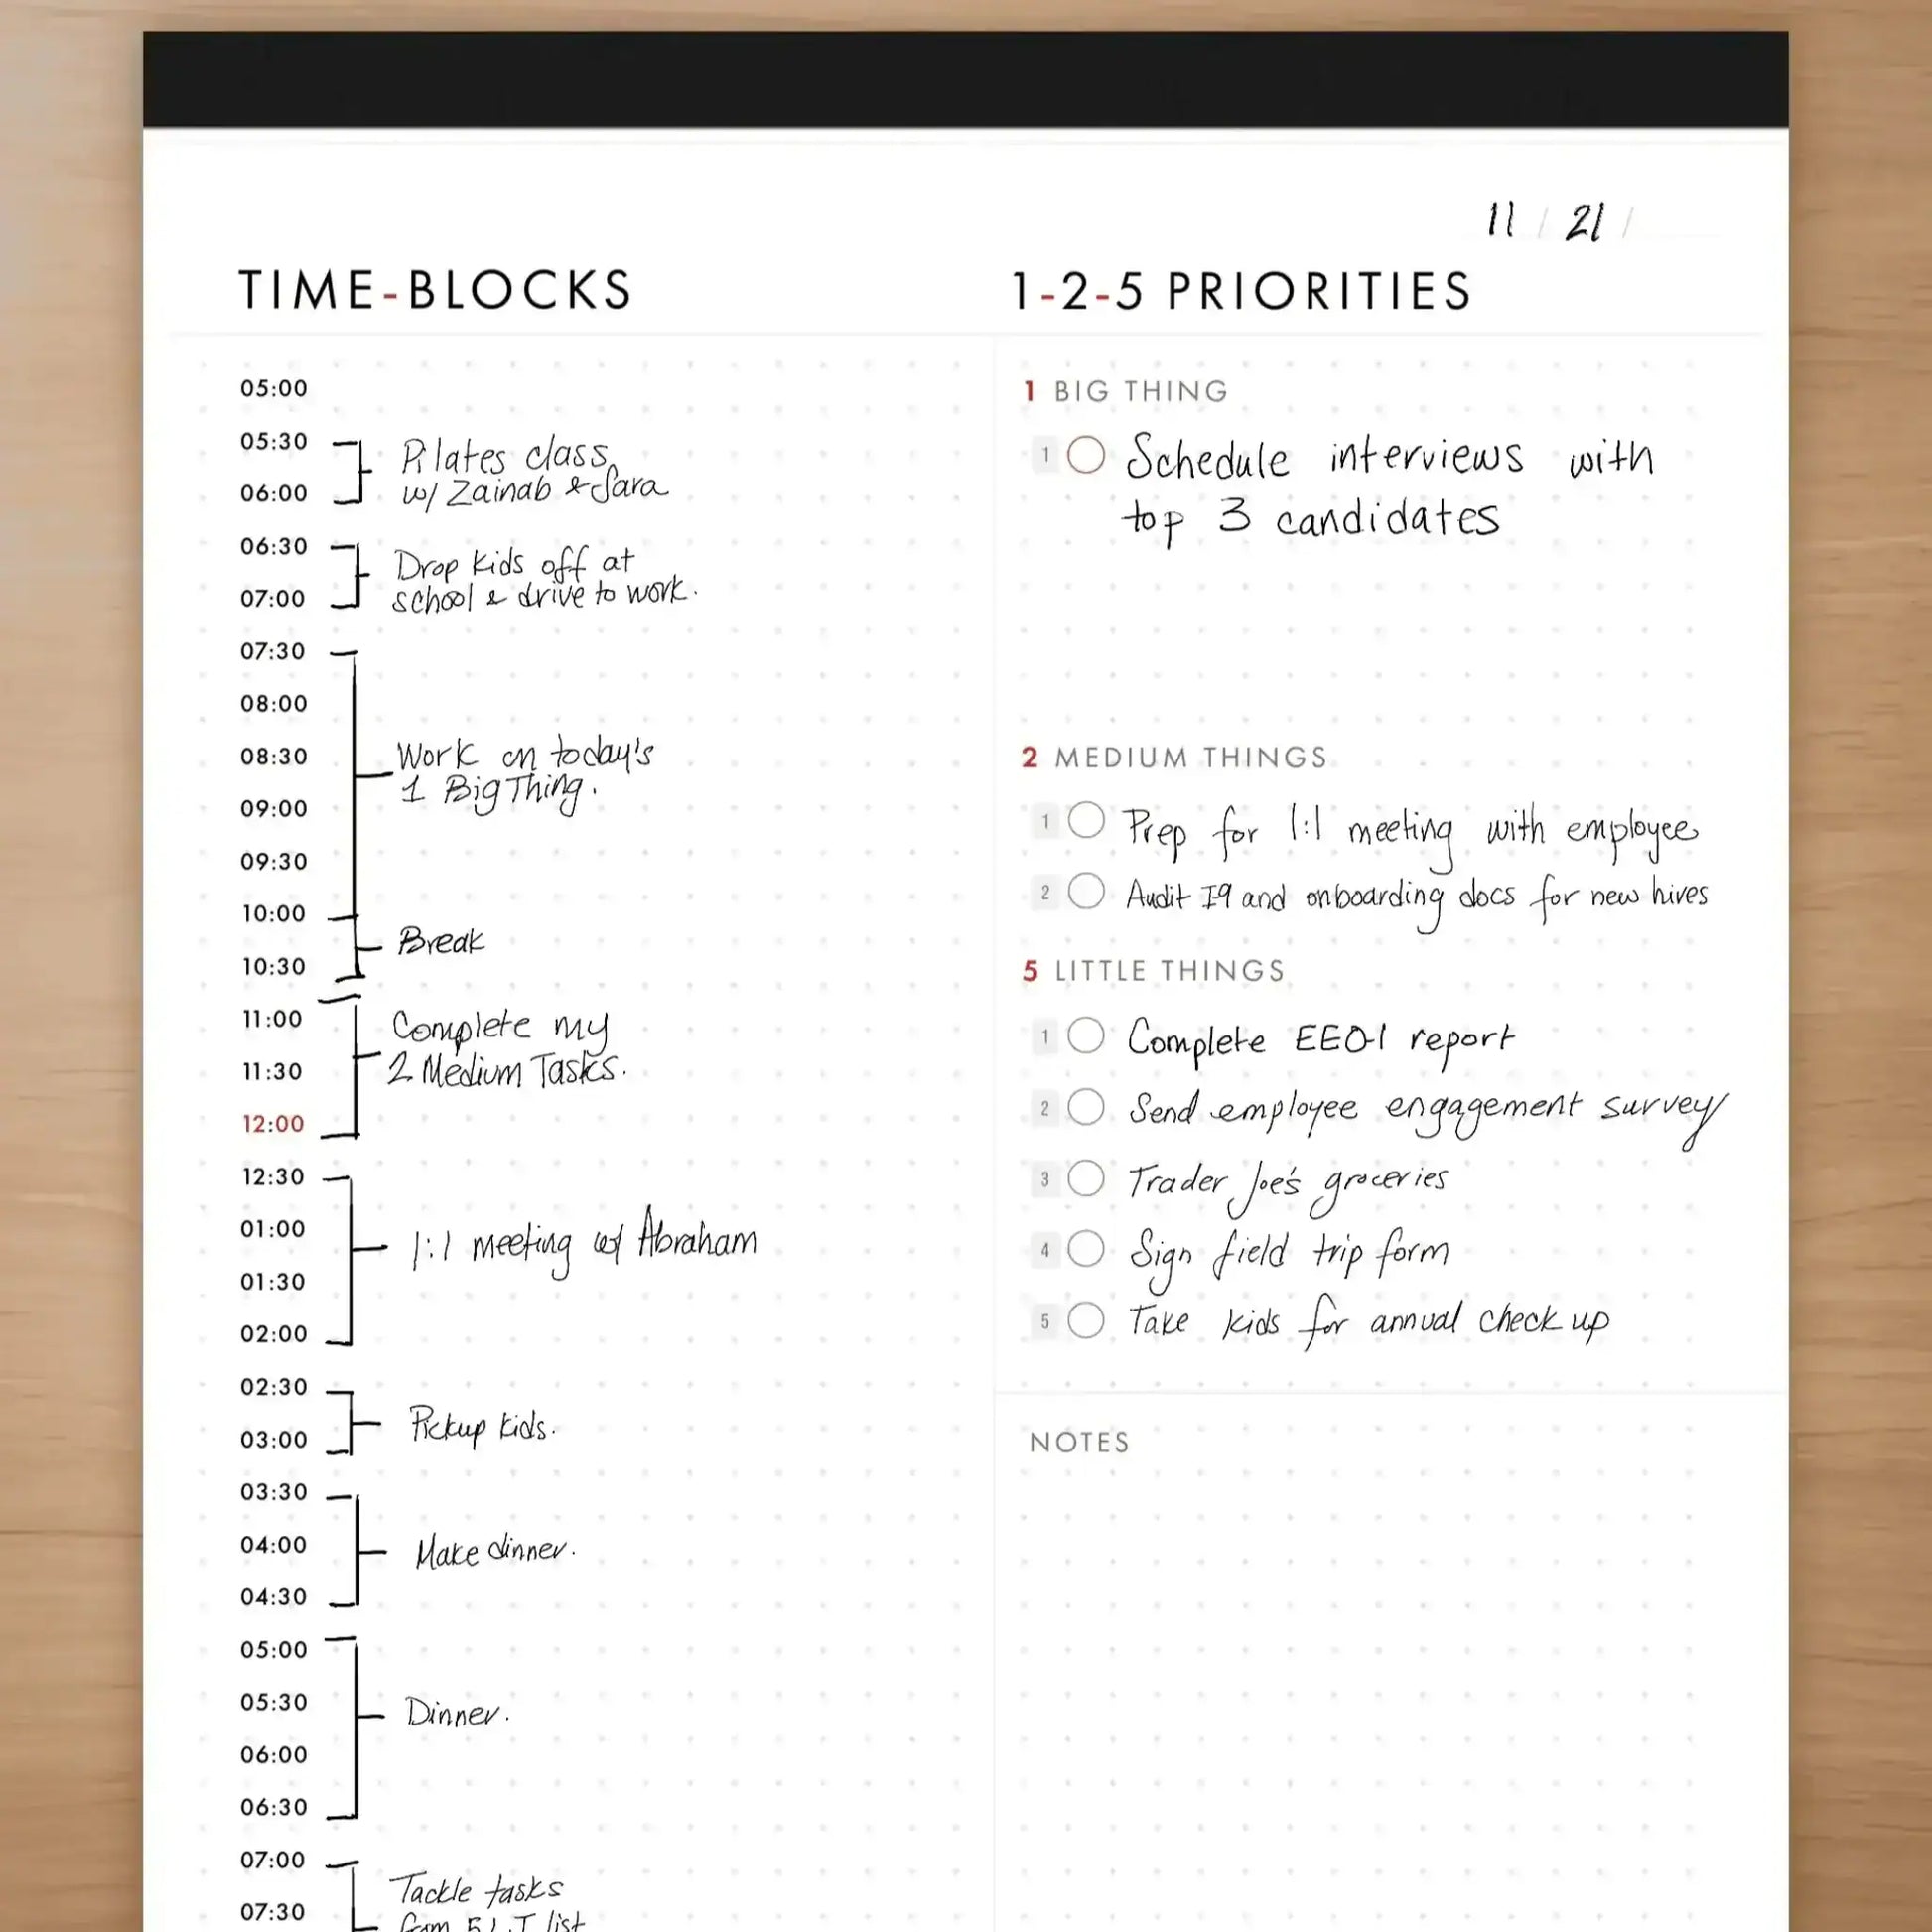 11 / 21 /
TIME-BLOCKS
05:00
05:30
Pilates class
06:00
w/ Zainab & Sara
06:30
Drop kids off at
07:00
school & drive to work.
07:30
08:00
08:30
Work on today's
09:00
1 Big Thing.
09:30
10:00
Break
10:30
11:00
Complete my
11:30
2 Medium Tasks.
12:00
12:30
01:00
1:1 meeting w/ Abraham
01:30
02:00
02:30
Pickup kids.
03:00
03:30
04:00
Make dinner.
04:30
05:00
05:30
Dinner.
06:00
06:30
07:00
Tackle tasks
07:30
from 5 L.T list
1-2-5 PRIORITIES
1 BIG THING
1 Schedule interviews with
top 3 candidates
2 MEDIUM THINGS
1 Prep for 1:1 meeting with employee
2 Audit I9 and onboarding docs for new hires
5 LITTLE THINGS
1 Complete EEO-1 report
2 Send employee engagement survey
3 Trader Joe's groceries
4 Sign field trip form
5 Take kids for annual check up
NOTES